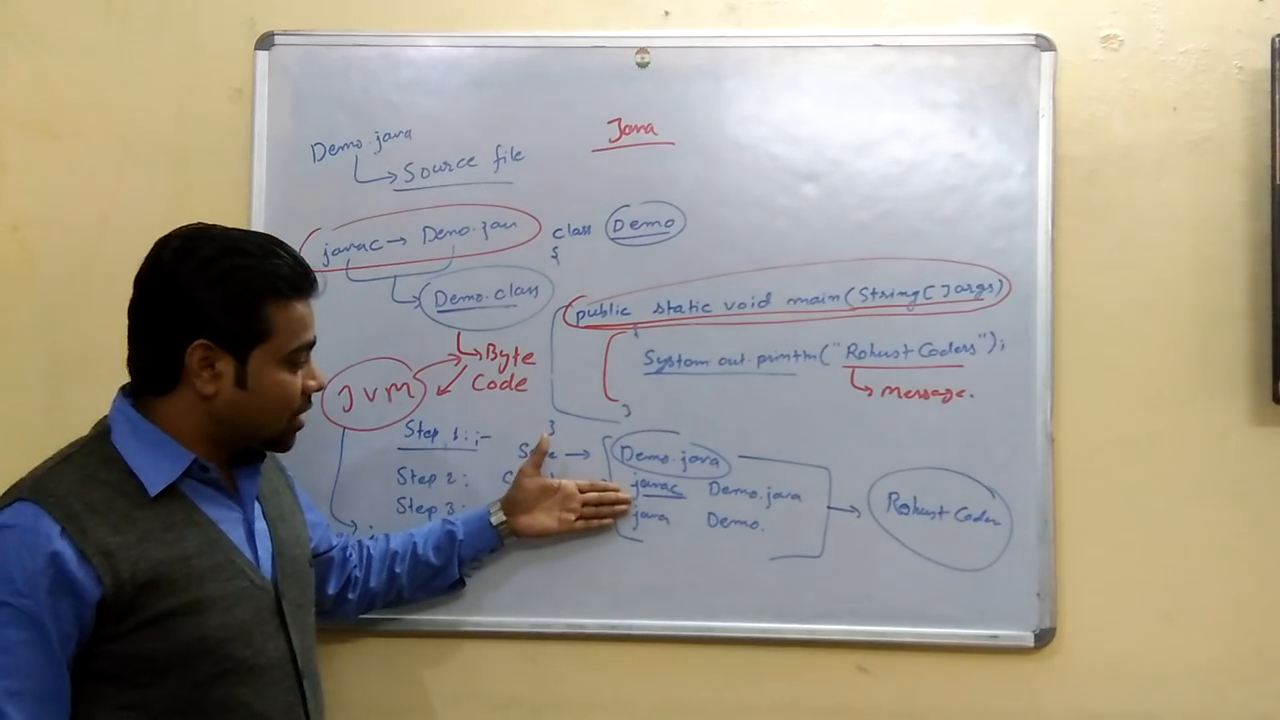 Java
Demo.java
Source file
javac → Demo.java
Demo.class
Byte
Code
JVM
class Demo
{
public static void main(String[]args)
{
System.out.println("Robust Coders");
Message.
}
}
Step 1:;-
→ Demo.java
Step 2:
javac Demo.java
Step 3:
java Demo.
Robust Coder